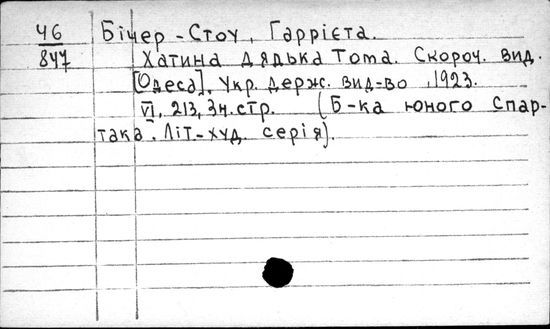 Ч6 Бічер-Стоу, Гаррієта.
847 Хатина дядька Тома. Скороч. вид.
[Одеса], Укр. держ. вид-во, 1923.
VI, 213, 3н. стр. (Б-ка юного Спар-
така. Літ-худ. серія).